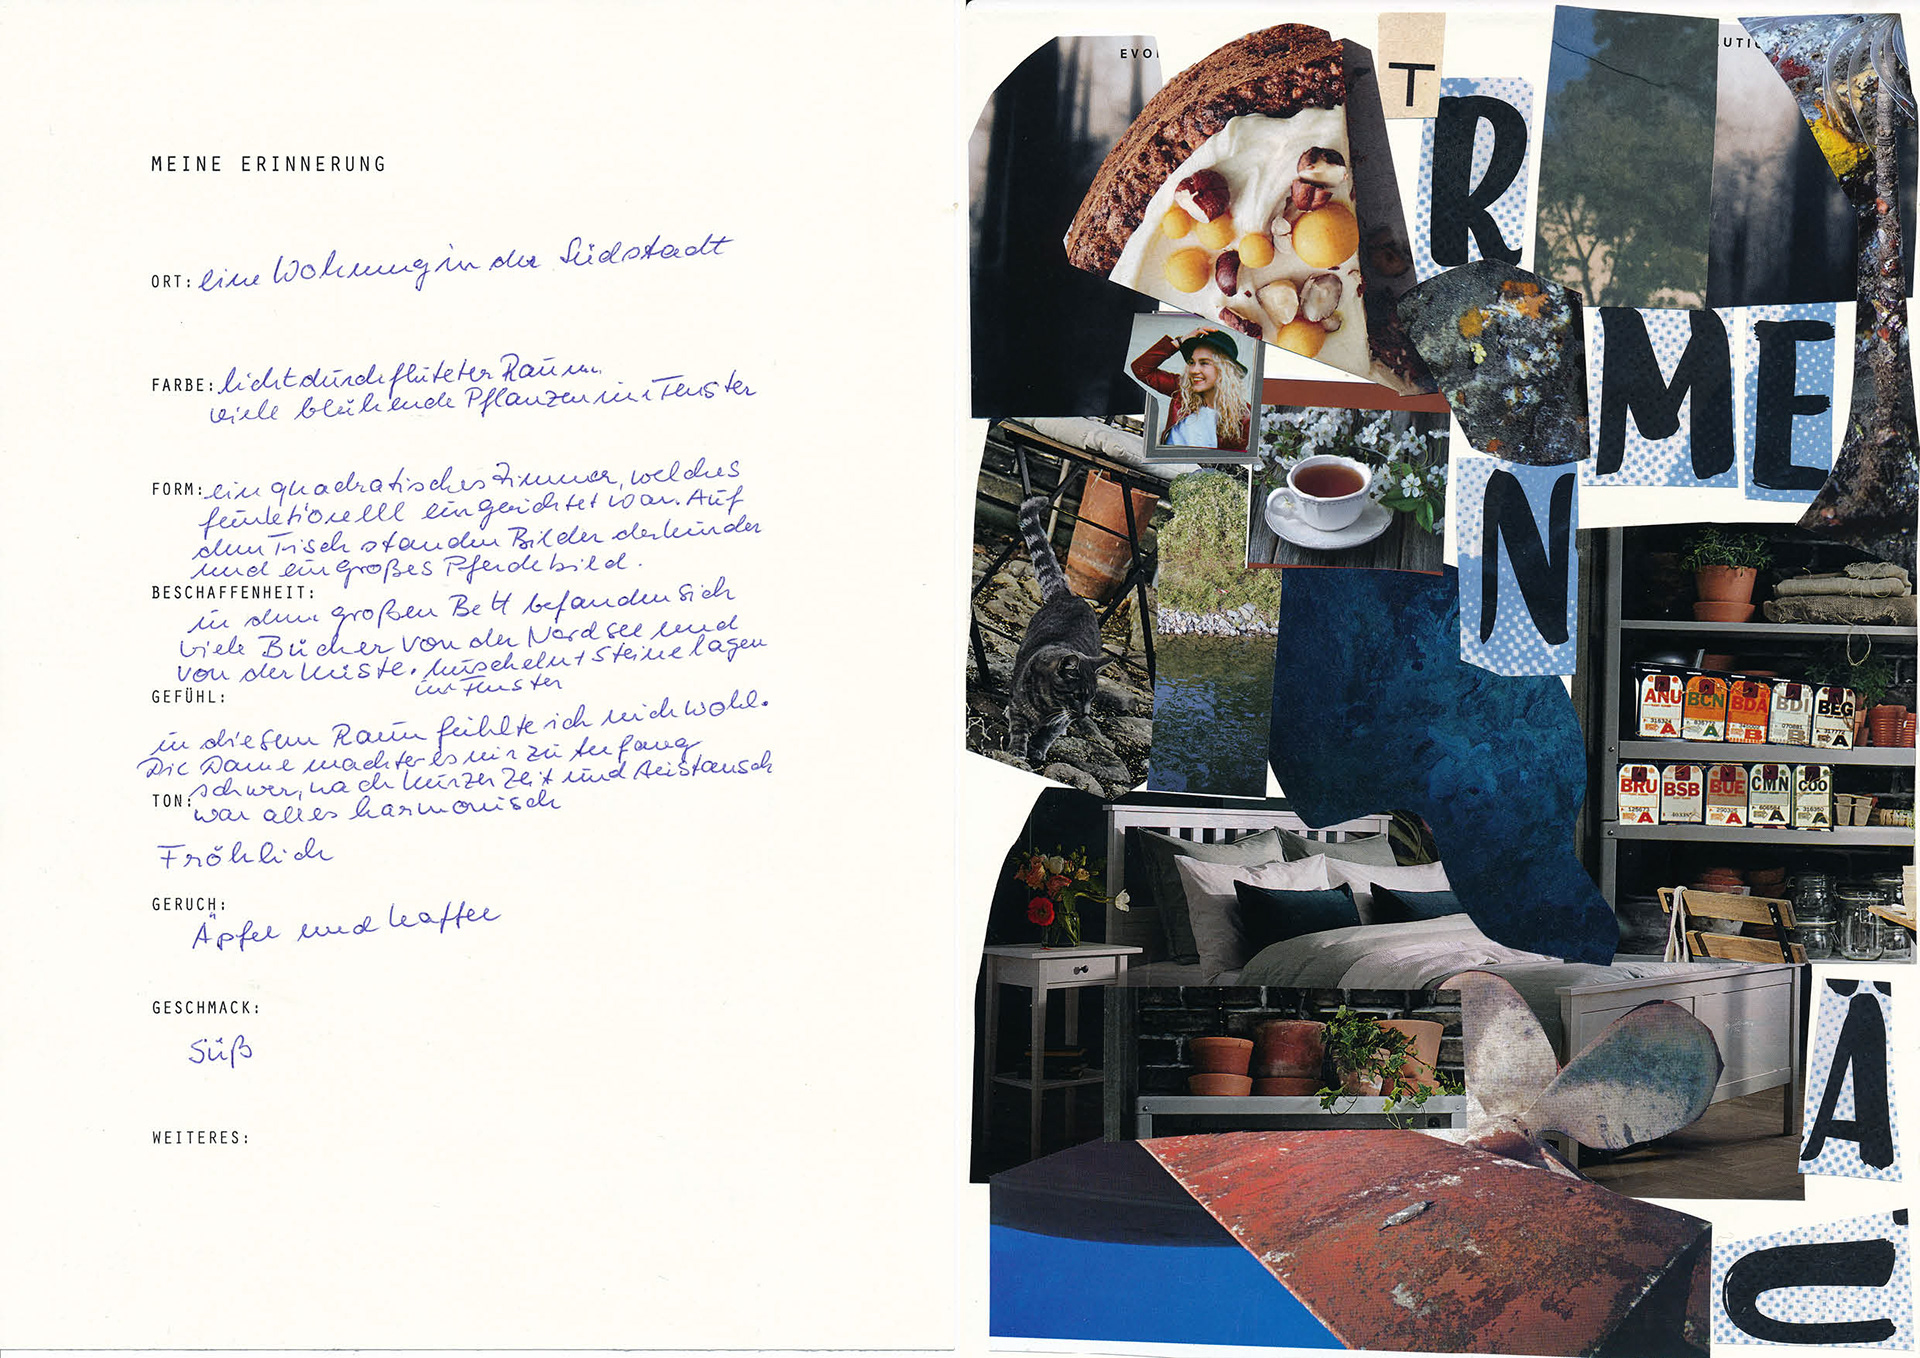 MEINE ERINNERUNG
ORT: eine Wohnung in der Südstadt
FARBE: lichtdurchfluteter Raum
viele blühende Pflanzen im Fenster
FORM: ein quadratisches Zimmer, welches
funktionell eingerichtet war. Auf
dem Tisch standen Bilder der Kinder
und ein großes Pferdebild.
BESCHAFFENHEIT:
in dem großen Bett befanden sich
viele Bücher von der Nordsee und
von der Küste. Muscheln + Steine lagen
im Fenster
GEFÜHL:
in diesem Raum fühlte ich mich wohl.
Die Dame machte es mir zu Anfang
schwer, nach kurzer Zeit und Austausch
TON: war alles harmonisch
Fröhlich
GERUCH:
Äpfel und Kaffee
GESCHMACK:
süß
WEITERES:
EVO
UTIO
T
R
M E
N
ANU BCN BDA BDI BEG
A A B B A
BRU BSB BUE CMN COO
A A A A A
Ä
U